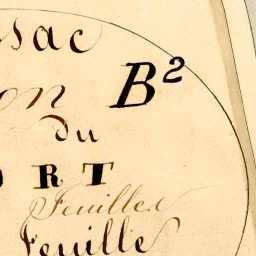 sac
on B²
du
ORT
Feuilles
Feuille